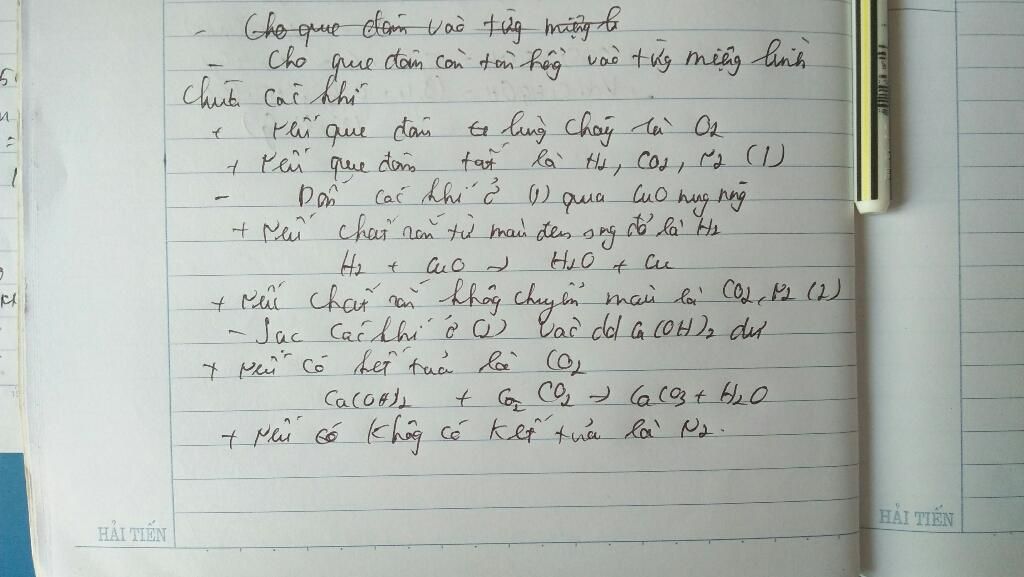 - Cho que đóm vào từg miệng b
- Cho que đóm còn tàn hồg vào từg miệng bình
chứa các khí
+ Nếu que đóm bùng cháy là O2
+ Nếu que đóm tắt là H2, CO2, N2 (1)
- Dẫn các khí ở (1) qua CuO nug nóg
+ Nếu chất rắn từ màu đen sag đỏ là H2
H2 + CuO → H2O + Cu
+ Nếu chất rắn khôg chuyển màu là CO2, N2 (2)
- Sục các khí ở (2) vào dd Ca(OH)2 dư
+ Nếu có kết tủa là CO2
Ca(OH)2 + CO2 → CaCO3 + H2O
+ Nếu có khôg có kết tủa là N2.
HẢI TIẾN
HẢI TIẾN